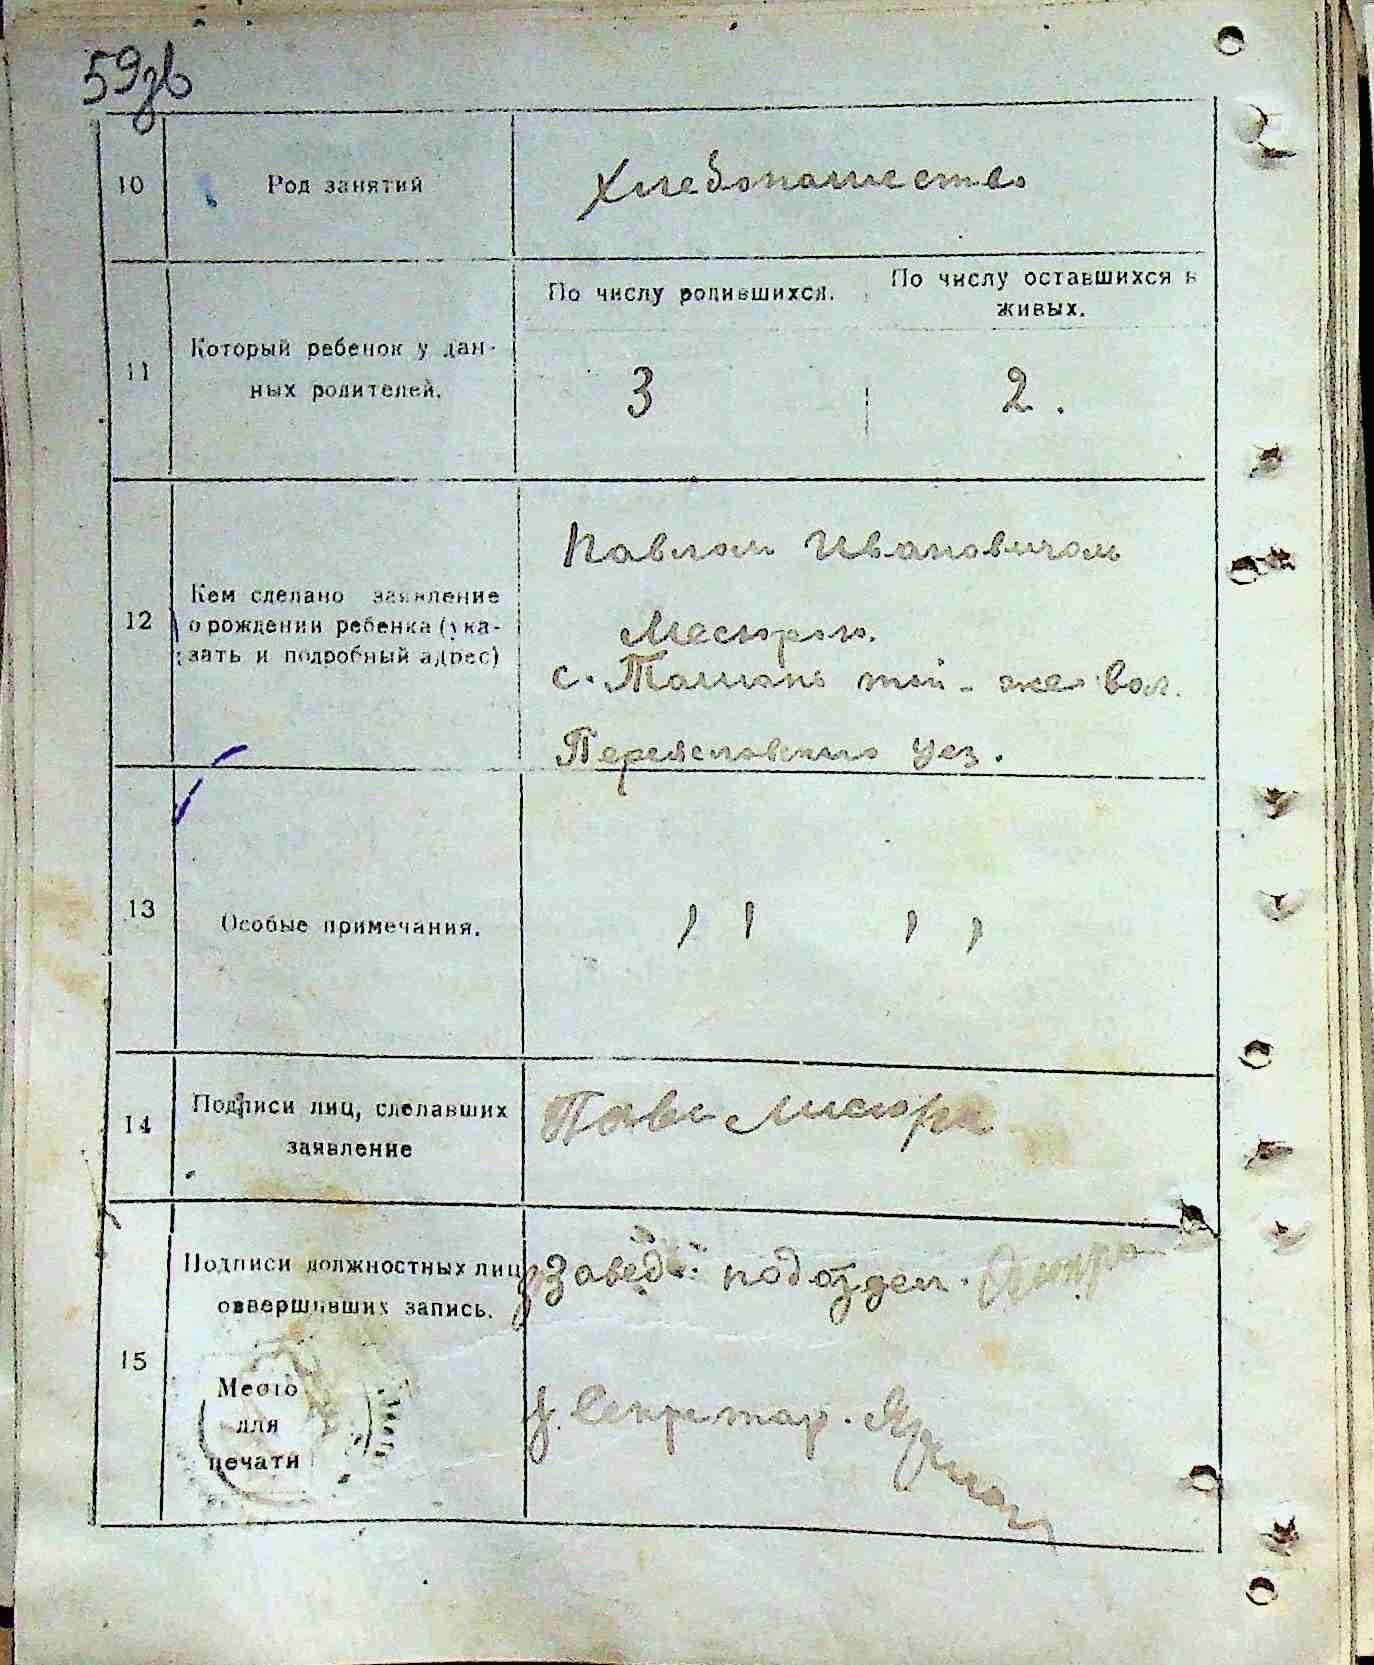 59зв
10
Род занятий
Хлебопашество
11
Который ребенок у дан-
ных родителей.
По числу родившихся.
По числу оставшихся в
живых.
3
2.
12
Кем сделано заявление
о рождении ребенка (ука-
зать и подробный адрес)
Павлом Ивановичом
Месюрою.
с. Ташань той-же вол.
Переяславского уез.
13
Особые примечания.
14
Подписи лиц, сделавших
заявление
Павл Мисюра
15
Подписи должностных лиц,
совершивших запись.
Место
для
печати
Завед. подотдел.
Секретар.